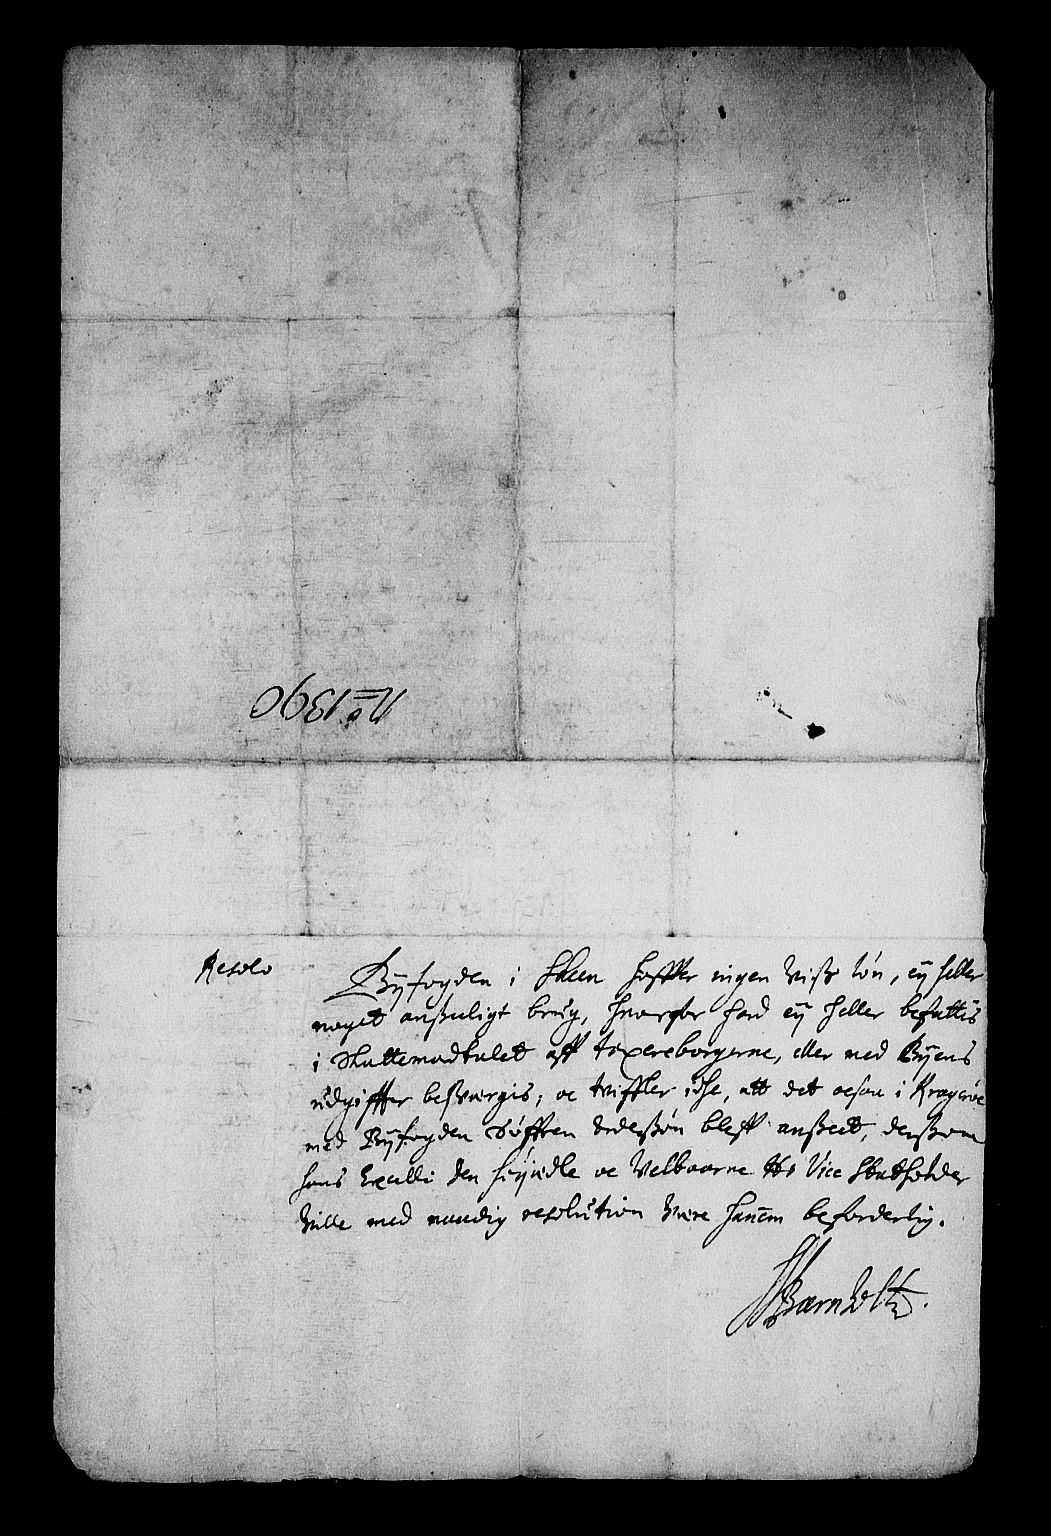 No 1390
Resolo
Byfogden i Skeen haffter ingen viss løn, eÿ heller
noget anseeligt brug, hvorfor hand eÿ heller befattis
i Skattemandtalet aff taxereborgerne, eller med Byens
udgiffter besværgis; oc tviffler iche, att det ocsaa i Kragerøe
med Byfogden Søffren Anderssøn bleff anseet, dersom
hans Excell: den høyædle oc Velbaarne Hr Vice Statholder
ville med naadig resolution være hannem beforderlig.